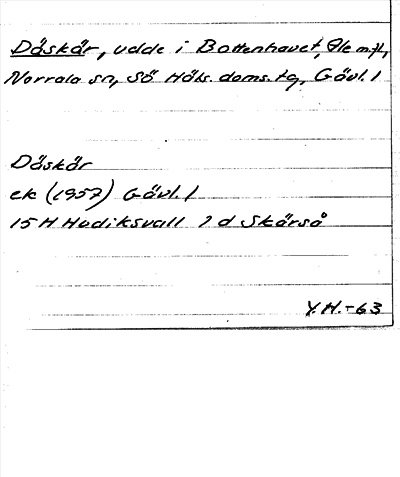 Dåskär, udde i Bottenhavet, Ale m.fl.,
Norrala sn, Sö Häls. doms. tg, Gävl. l
Dåskär
ek (1957) Gävl. l
15 H Hudiksvall 2 d Skärså
Y.H.-63